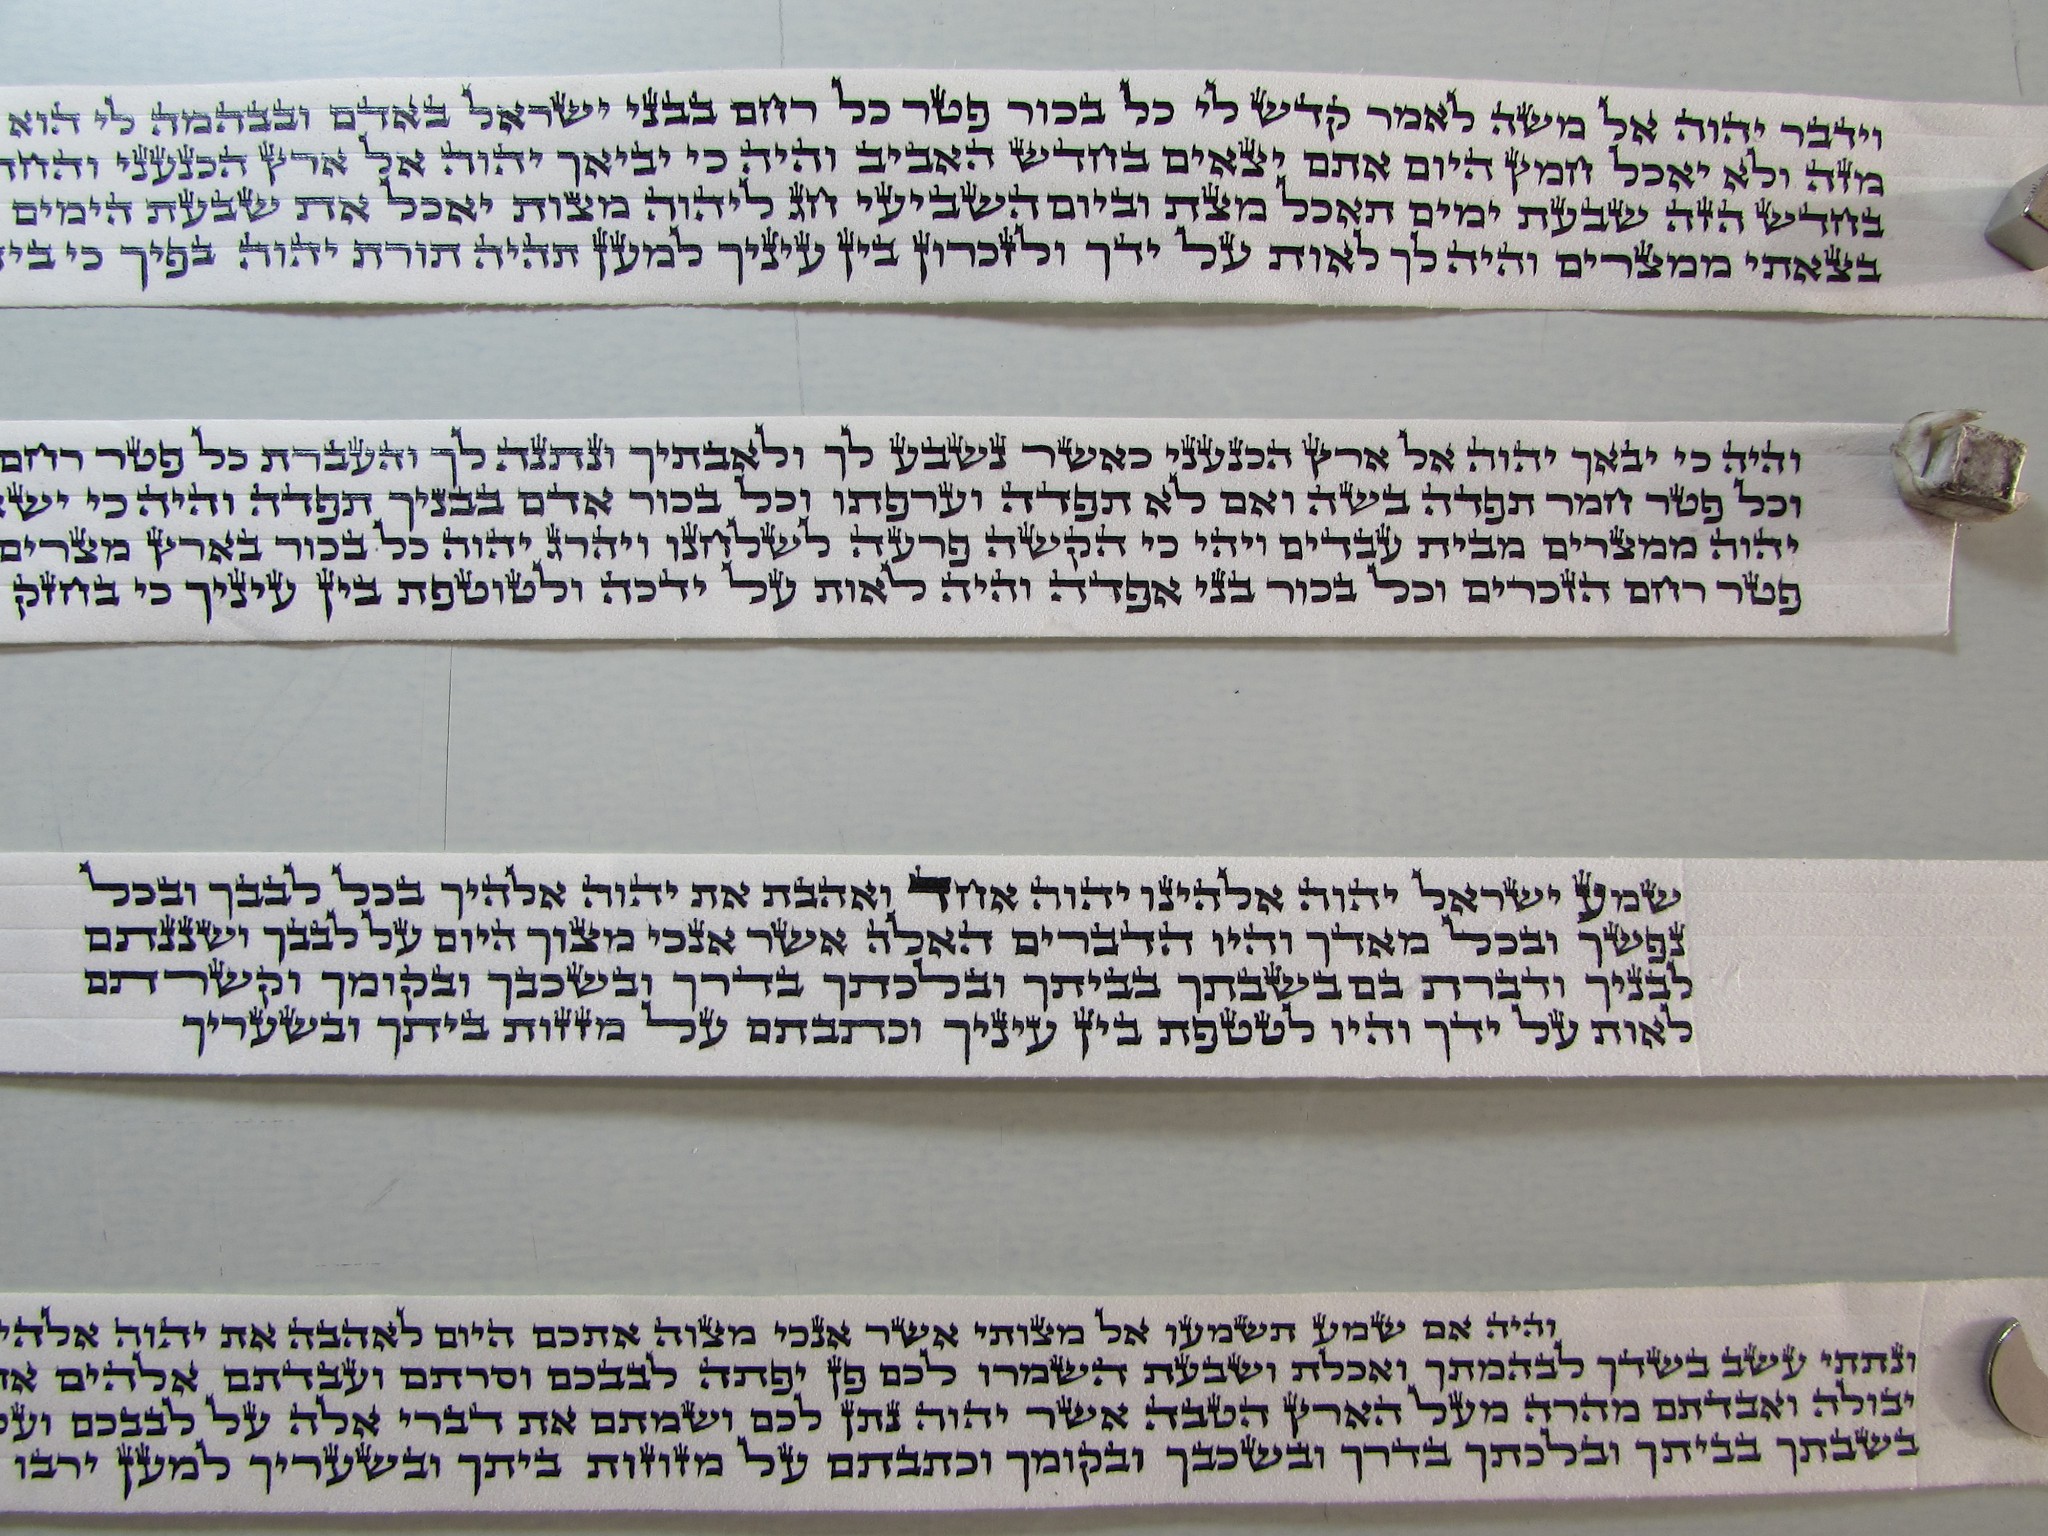 וידבר יהוה אל משה לאמר קדש לי כל בכור פטר כל רחם בבני ישראל באדם ובבהמה לי הוא
מזה ולא יאכל חמץ היום אתם יצאים בחדש האביב והיה כי יביאך יהוה אל ארץ הכנעני
בחדש הזה שבעת ימים תאכל מצת וביום השביעי חג ליהוה מצות יאכל את שבעת הימים
בצאתי ממצרים והיה לך לאות על ידך ולזכרון בין עיניך למען תהיה תורת יהוה בפיך כי
והיה כי יבאך יהוה אל ארץ הכנעני כאשר נשבע לך ולאבתיך ונתנה לך והעברת כל פטר רחם
וכל פטר חמר תפדה בשה ואם לא תפדה וערפתו וכל בכור אדם בבניך תפדה והיה כי
יהוה ממצרים מבית עבדים ויהי כי הקשה פרעה לשלחנו ויהרג יהוה כל בכור בארץ מצרים
פטר רחם הזכרים וכל בכור בני אפדה והיה לאות על ידכה ולטוטפת בין עיניך כי בחזק
שמע ישראל יהוה אלהינו יהוה אחד ואהבת את יהוה אלהיך בכל לבבך ובכל
נפשך ובכל מאדך והיו הדברים האלה אשר אנכי מצוך היום על לבבך ושננתם
לבניך ודברת בם בשבתך בביתך ובלכתך בדרך ובשכבך ובקומך וקשרתם
לאות על ידך והיו לטטפת בין עיניך וכתבתם על מזזות ביתך ובשעריך
והיה אם שמע תשמעו אל מצותי אשר אנכי מצוה אתכם היום לאהבה את יהוה
ונתתי עשב בשדך לבהמתך ואכלת ושבעת השמרו לכם פן יפתה לבבכם וסרתם ועבדתם אלהים
יבולה ואבדתם מהרה מעל הארץ הטבה אשר יהוה נתן לכם ושמתם את דברי אלה על לבבכם
בשבתך בביתך ובלכתך בדרך ובשכבך ובקומך וכתבתם על מזוזות ביתך ובשעריך למען ירבו